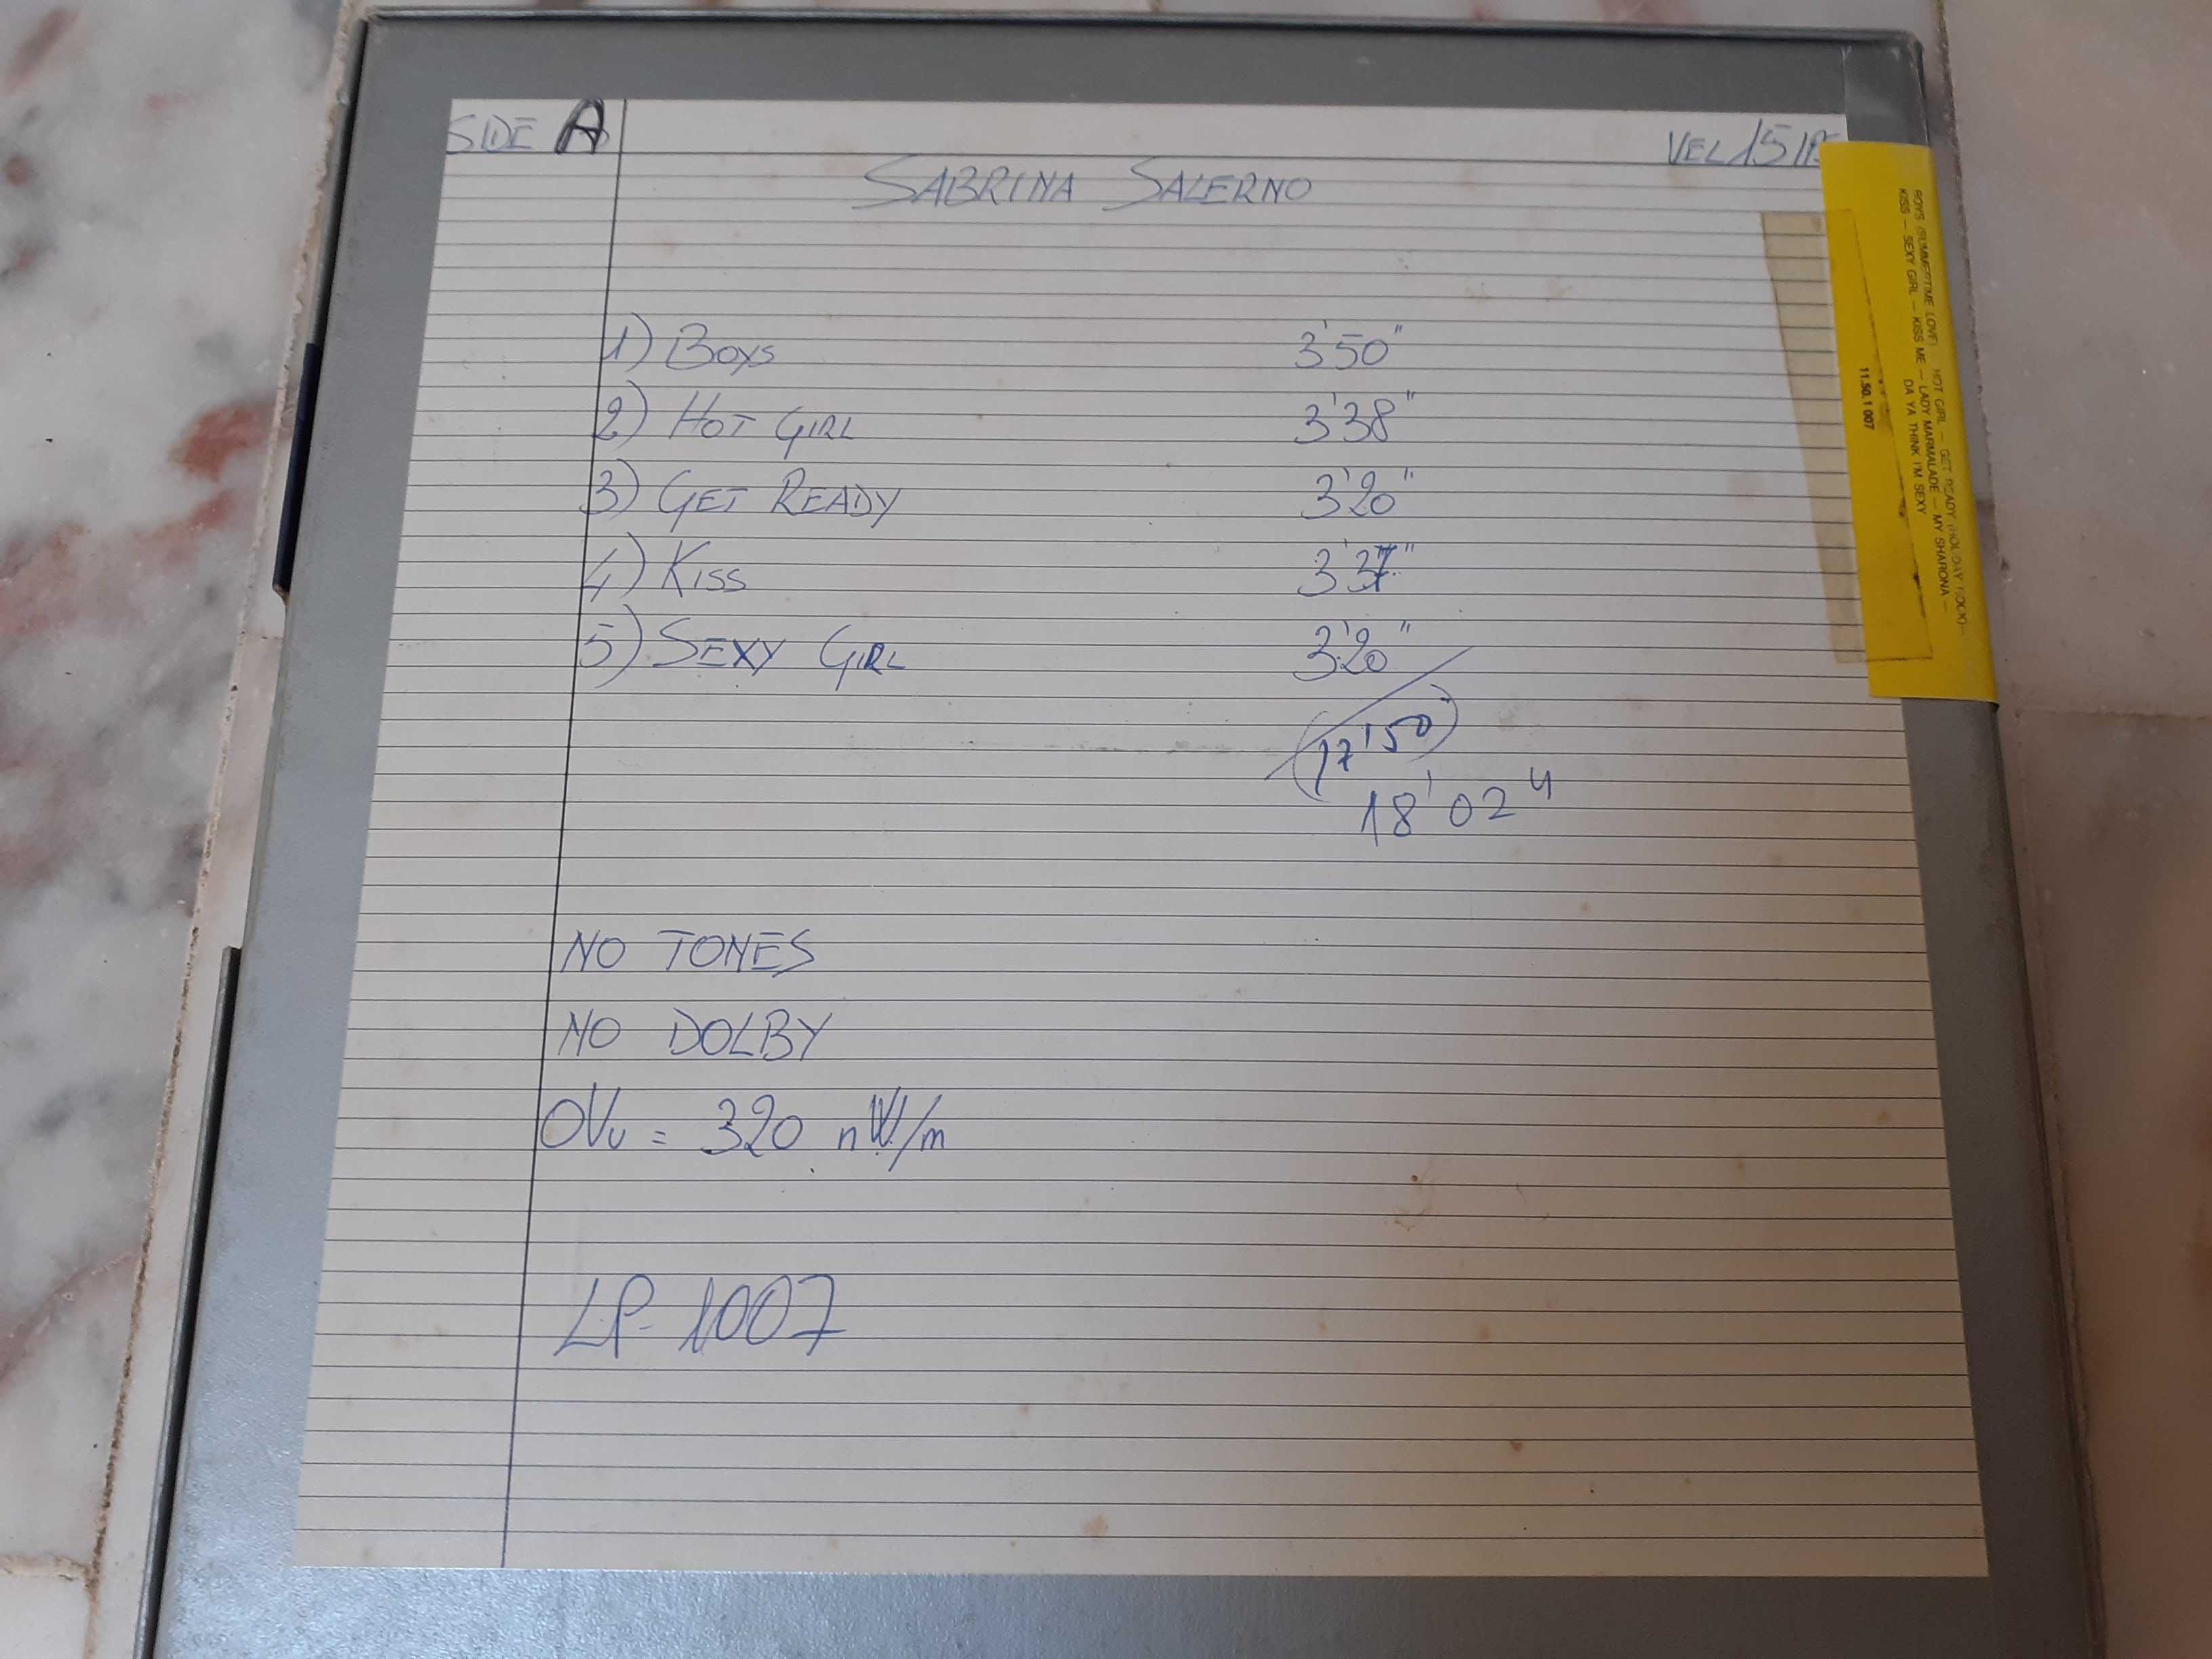 SIDE A
VEL 15 IPS
SABRINA SALERNO
1) BOYS 3'50"
2) HOT GIRL 3'38"
3) GET READY 3'20"
4) KISS 3'37"
5) SEXY GIRL 3'20"
(17'50")
18'02"
NO TONES
NO DOLBY
OVu = 320 nW/m
LP-1007
BOYS (SUMMERTIME LOVE) — HOT GIRL — GET READY (HOLIDAY ROCK) —
KISS — SEXY GIRL — KISS ME — LADY MARMALADE — MY SHARONA —
DA YA THINK I'M SEXY
11.50.1 007